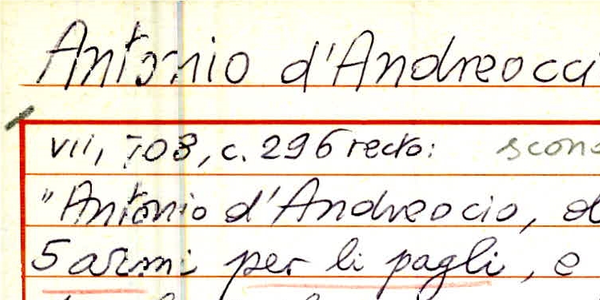 Antonio d'Andreocci
VII, 703, c. 296 recto:
"Antonio d'Andreocio,
5 armi per li pagli, e